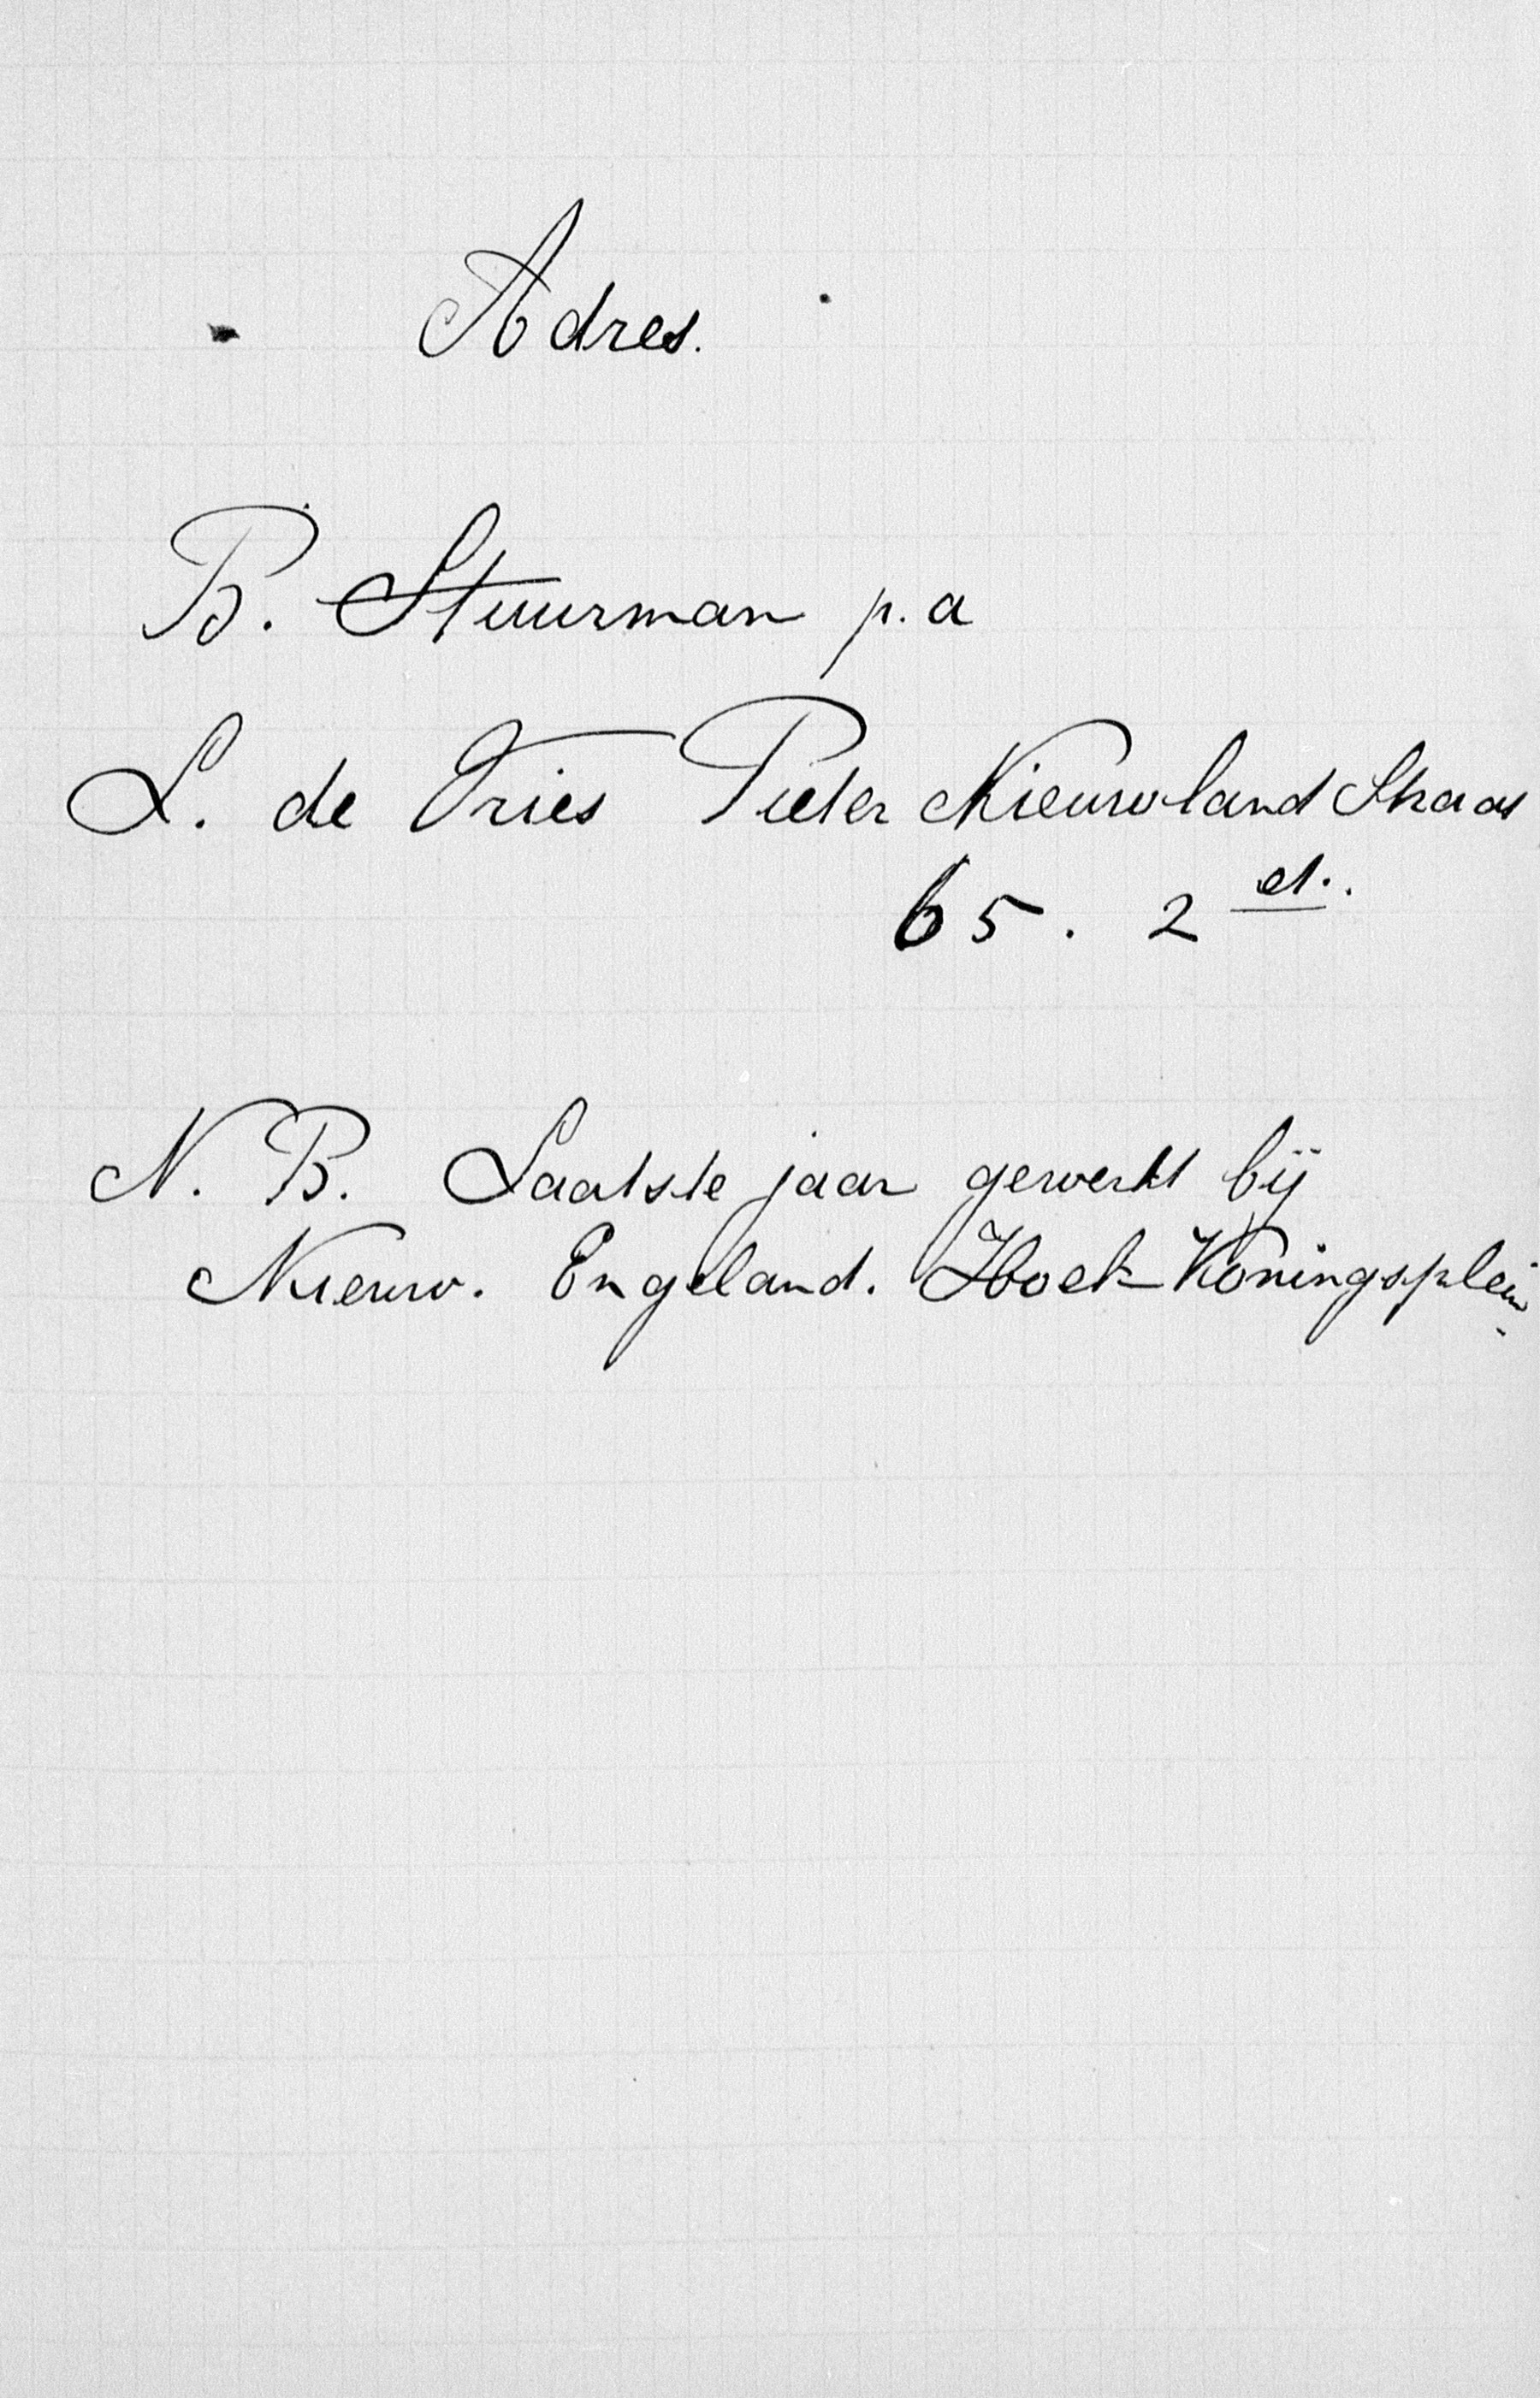 Adres.
B. Stuurman p. a
L. de Vries Pieter Nieuwland Straat
65. 2 et.
N. B. Laatste jaar gewerkt bij
Nieuw. Engeland. Hoek Koningsplein.